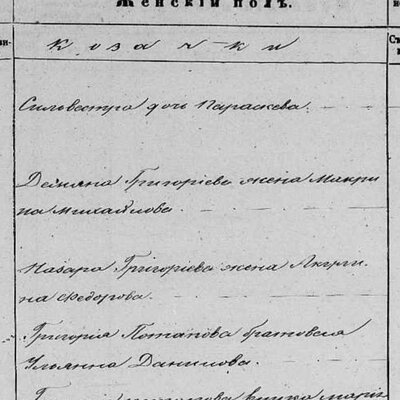 Женскій полъ.
козачки
Силвестра дочь Параскева.
Демяна Григоріева жена Макри
на Михайлова.
Назара Григоріева жена Акули-
на Федорова.
Григорія Потапова братовая
Ульянна Данилова.